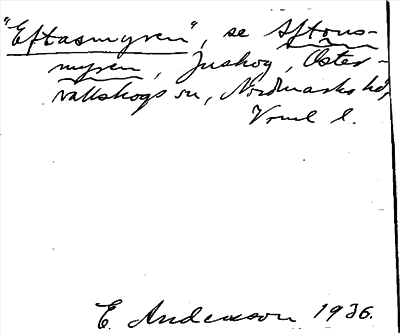 "Eftasmyren", se Aftons-
myren, Juskog, Öster-
vallskogs sn, Nordmarks hd,
Vrml l.
E. Andersson 1936.